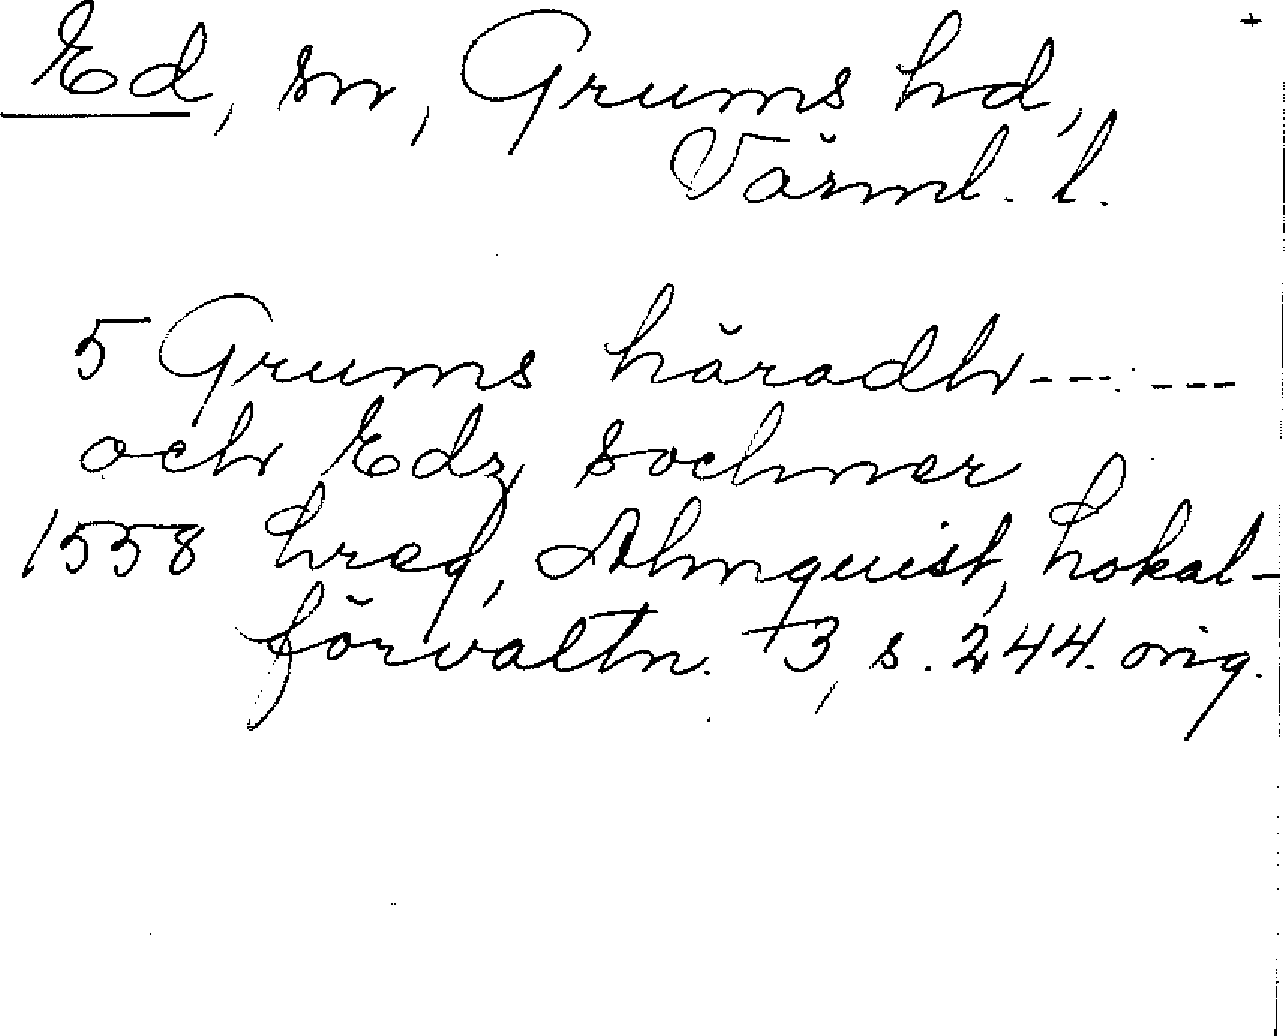 Ed, sn, Grums hd, +
Värml. l.
5 Grums häradh --- ---
och Edz sochner
1558 hreg, Almquist, Lokal-
förvaltn. 3, s. 244. orig.